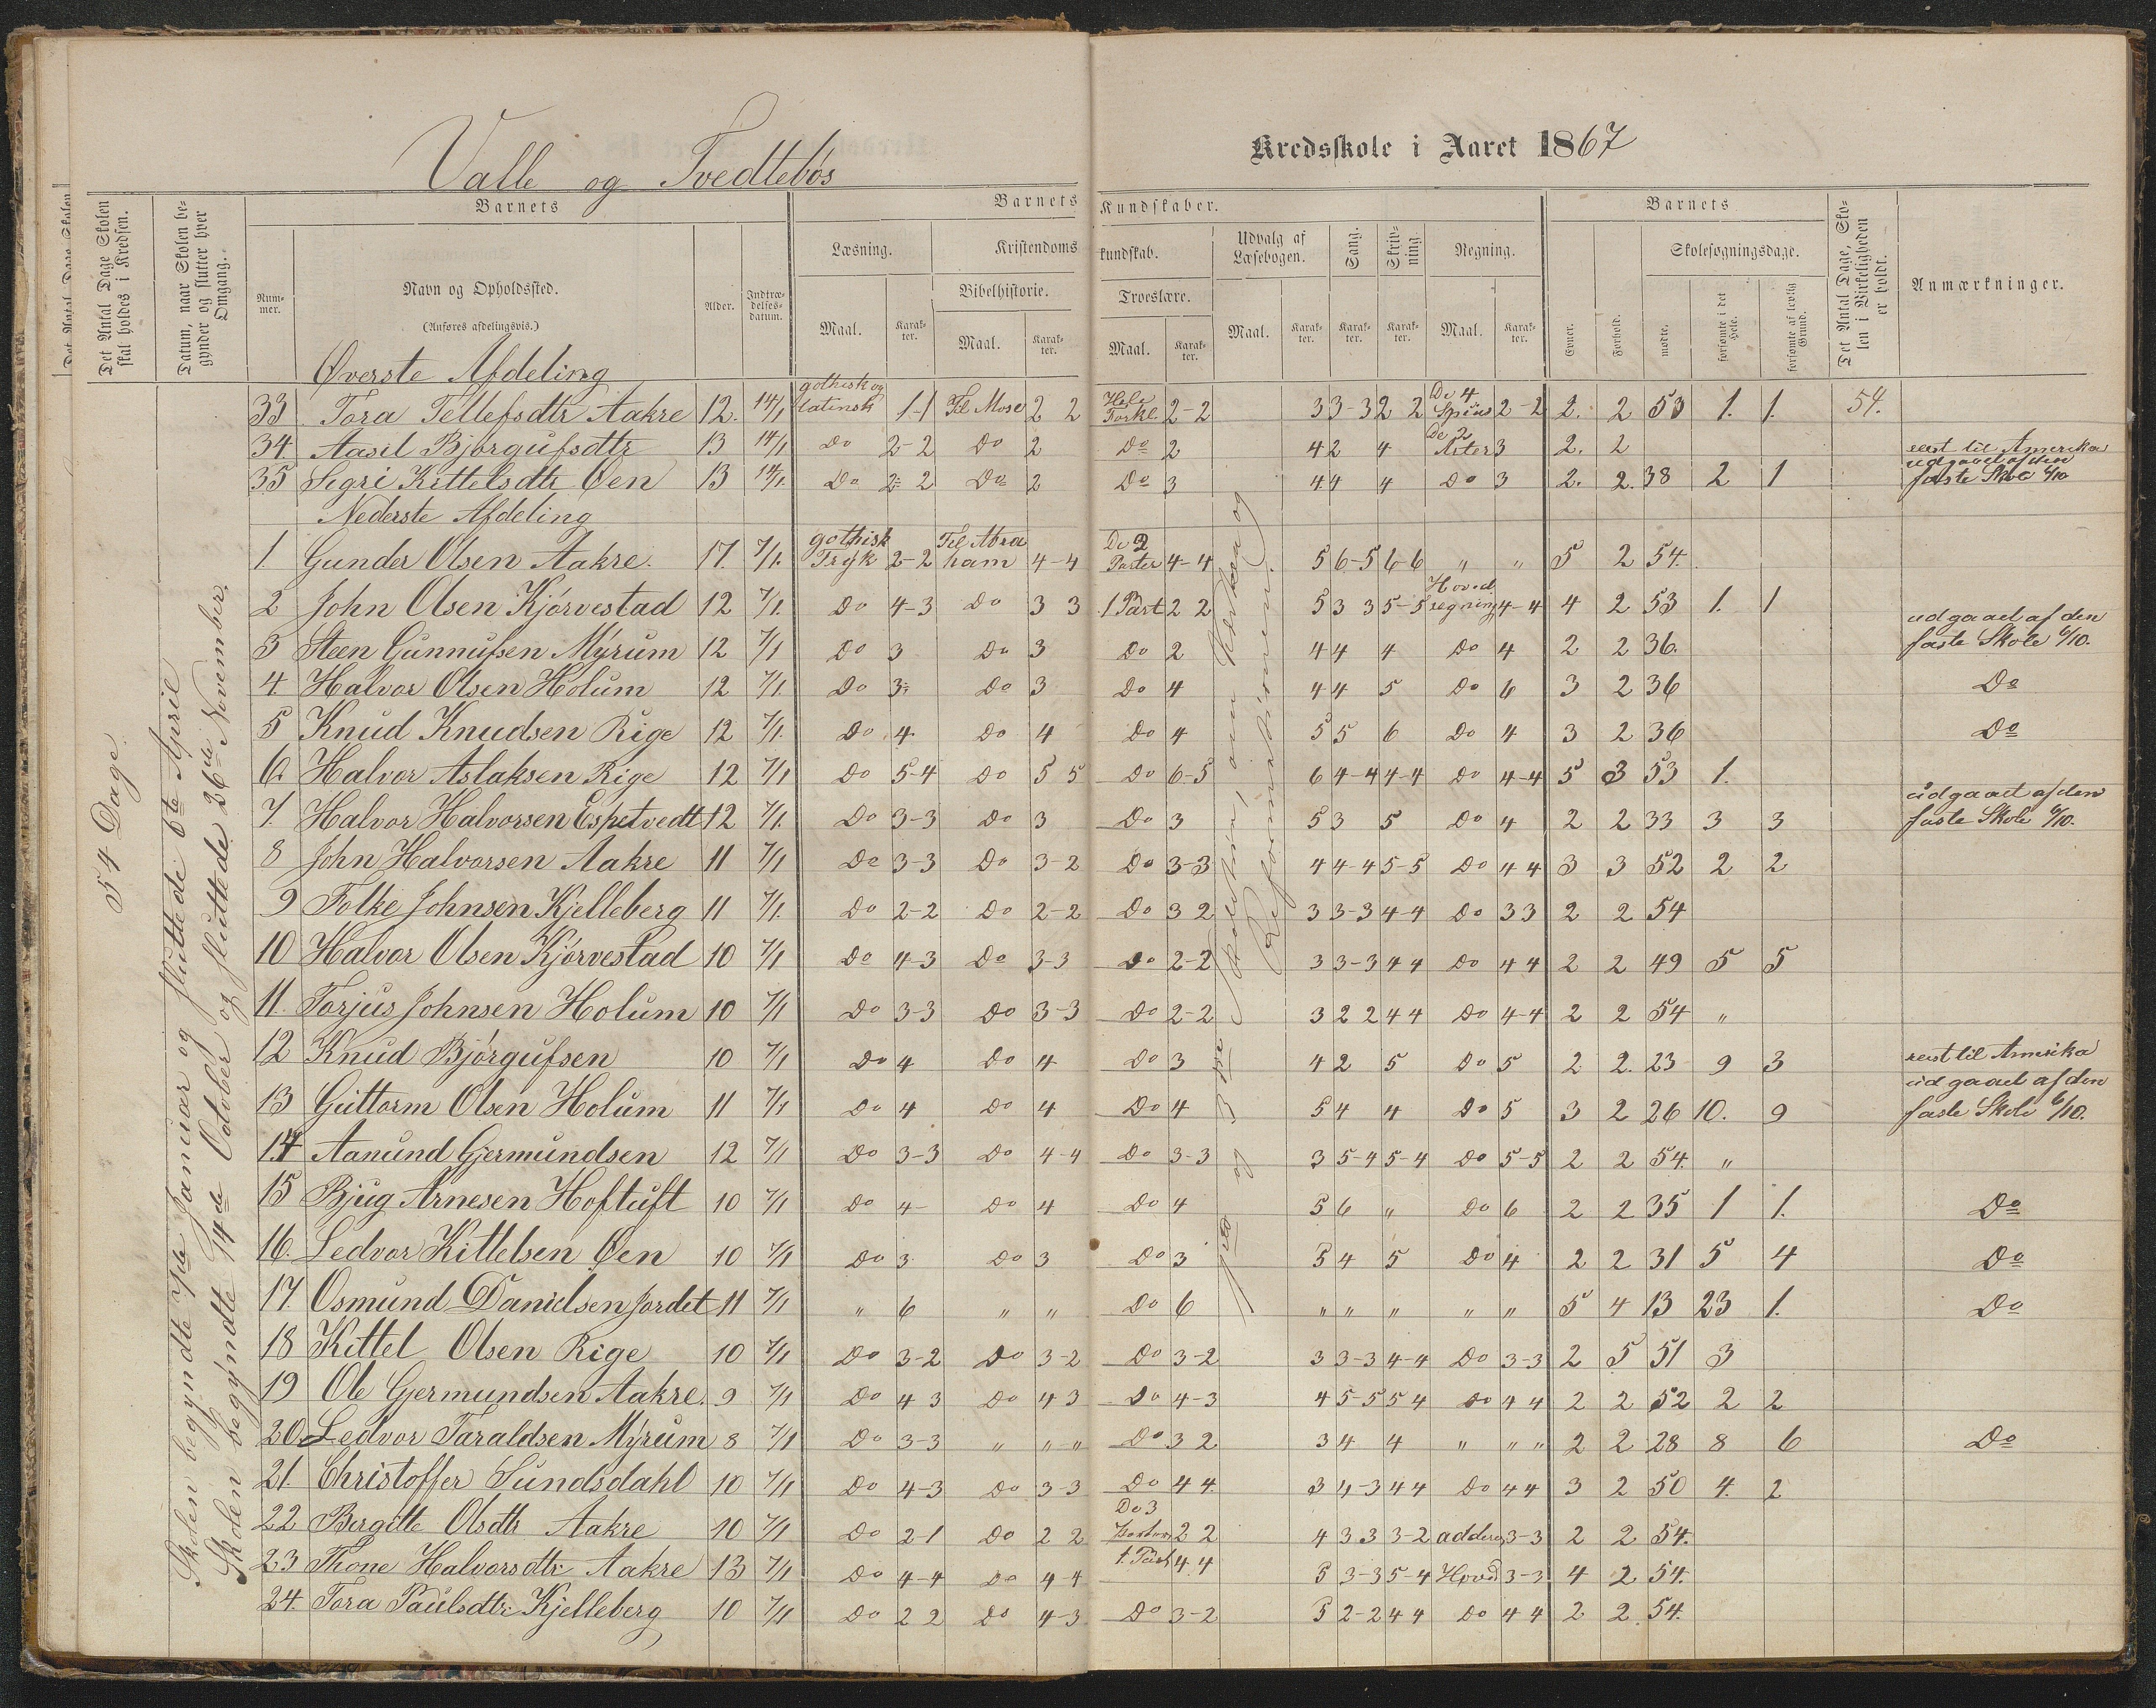 Valle og Tvedtebös
Kredsskole i Aaret 1867
Det Antal Dage Skolen skal holdes i Kredsen.
Datum, naar Skolen begynder og slutter hver Omgang.
Barnets
Barnets Kundskaber.
Barnets
Det Antal Dage, Skolen i Virkeligheden er holdt.
Anmærkninger.
Nummer.
Navn og Opholdssted.
(Anføres afdelingsvis.)
Alder.
Indtrædelsesdatum.
Læsning.
Kristendomskundskab.
Udvalg af Læsebogen.
Sang.
Skrivning.
Regning.
Evner.
Forhold.
Skolesøgningsdage.
Bibelhistorie.
Troeslære.
Maal. Karakter. Maal. Karakter. Maal. Karakter. Maal. Karakter. Karakter. Karakter. Maal. Karakter.
mødte.
forsømte i det Hele.
forsømte af lovlig Grund.
54 Dage.
Skolen begyndte 7de Januar og sluttede 6te April
Skolen begyndte 14de October og sluttede 26de November.
Øverste Afdeling
33 Tora Tellefsdtr Aakre 12. 14/1 gothisk og latinsk 1-1 Til Mose 2 2 Hele Forkl. 2-2 3 3-3 2 2 De 4 Spies 2-2 2. 2 53 1. 1. 54.
34. Aasil Bjørgufsdtr 13 14/1 Do 2-2 Do 2 Do 2 4 2 4 De 2 Arter 3 2. 2 reist til Amerika
35 Segri Kittelsdtr Øen 13 14/1. Do 2-2 Do 2 Do 3 4 4 4 Do 3 2. 2. 38 2 1 udgaaet af den faste Skole 6/10
Nederste Afdeling
1. Gunder Olsen Aakre. 17. 7/1. gothisk Tryk 2-2 Til Abraham 4-4 De 2 Parter 4-4 5 6-5 6-6 " " 5 2 54.
2 John Olsen Kjørvestad 12 7/1. Do 4-3 Do 3 3 1 Part 2 2 5 3 3 5-5 Hovedregning 4-4 4 2 53 1. 1
3 Steen Gunnufsen Myrum 12 7/1 Do 3 Do 3 Do 2 4 4 4 Do 4 2 2 36. udgaaet af den faste Skole 6/10.
4. Halvor Olsen Holum 12 7/1. Do 3. Do 3 Do 4 4 4 5 Do 6 3 2 36 Do
5 Knud Knudsen Rige 12 7/1. Do 4. Do 4 Do 4 5 5 6 Do 4 3 2 36 Do
6. Halvor Aslaksen Rige 12 7/1 Do 5-4 Do 5 5 Do 6-5 6 4-4 4-4 Do 4-4 5 3 53 1.
7. Halvor Halvorsen Espetvedt 12 7/1. Do 3-3 Do 3 Do 3 5 3 5 Do 4 2 2 33 3 3 udgaaet af den faste Skole 6/10.
8 John Halvorsen Aakre 11 7/1 Do 3-3 Do 3-2 Do 3-3 4 4-4 5-5 Do 4 4 3 3 52 2 2
9 Folke Johnsen Kjelleberg 11 7/1. Do 2-2 Do 2-2 Do 3 2 3 3-3 4-4 Do 3 3 2 2 54
10 Halvor Olsen Kjørvestad 10 7/1 Do 4-3 Do 3-3 Do 2-2 3 3-3 4 4 Do 4 4 2 2 49 5 5
11. Torjus Johnsen Holum 10 7/1 Do 3-3 Do 3-3 Do 2-2 3 2 2 4 4 Do 4-4 2 2 54 "
12 Knud Bjørgufsen 10 7/1 Do 4 Do 4 Do 3 4 2 5 Do 5 2 2. 23 9 3 reist til Amerika
13 Guttorm Olsen Holum 11 7/1 Do 4 Do 4 Do 4 5 4 4 Do 5 3 2 26 10. 9 udgaaet af den faste Skole 6/10.
14 Aanund Gjermundsen 12 7/1 Do 3-3 Do 4-4 Do 3-3 3 5-4 5-4 Do 5-5 2 2 54. "
15 Bjug Arnesen Hoftuft 10 7/1 Do 4- Do 4 Do 4 5 6 " Do 6 2 2 35 1 1. Do
16. Ledvor Kittelsen Øen 10 7/1 Do 3 Do 3 Do 3 5 4 5 Do 4 2 2 31 5 4 Do
17. Osmund Danielsen Jordet 11 7/1 " 6 " " Do 6 " " " " " 5 4 13 23 1. Do
18 Kittel Olsen Rige 10 7/1 Do 3-2 Do 3-2 Do 3-2 3 3-3 4-4 Do 3-3 2 5 51 3
19 Ole Gjermundsen Aakre. 9 7/1 Do 4 3 Do 4 3 Do 4-3 4 5-5 5 4 Do 4 4 2 2 52 2 2
20. Ledvor Taraldsen Myrum 8 7/1 Do 3-3 " " " Do 3 2 3 4 4 " " " 2 2 28 8 6 Do
21. Christoffer Sundsdahl 10 7/1 Do 4-3 Do 3-3 Do 4 4 3 4-3 4 4 Do 4 4 3 2 50 4. 2
22 Bergitte Olsdtr Aakre 10 7/1 Do 2-1 Do 2 2 De 3 Parter 2 2 4 3 3 3-2 addere 3-3 2 2 54.
23 Thone Halvorsdtr Aakre 13 7/1 Do 4-4 Do 4 4 1. Part 4 4 5 3-3 5-4 Hoved 3-3 4 2 54.
24. Tora Paulsdtr Kjelleberg 10 7/1 Do 2 2 Do 4-3 Do 3-2 5 2-2 4 4 Do 4 4 2 2. 54.
og 3die
Reformationen.